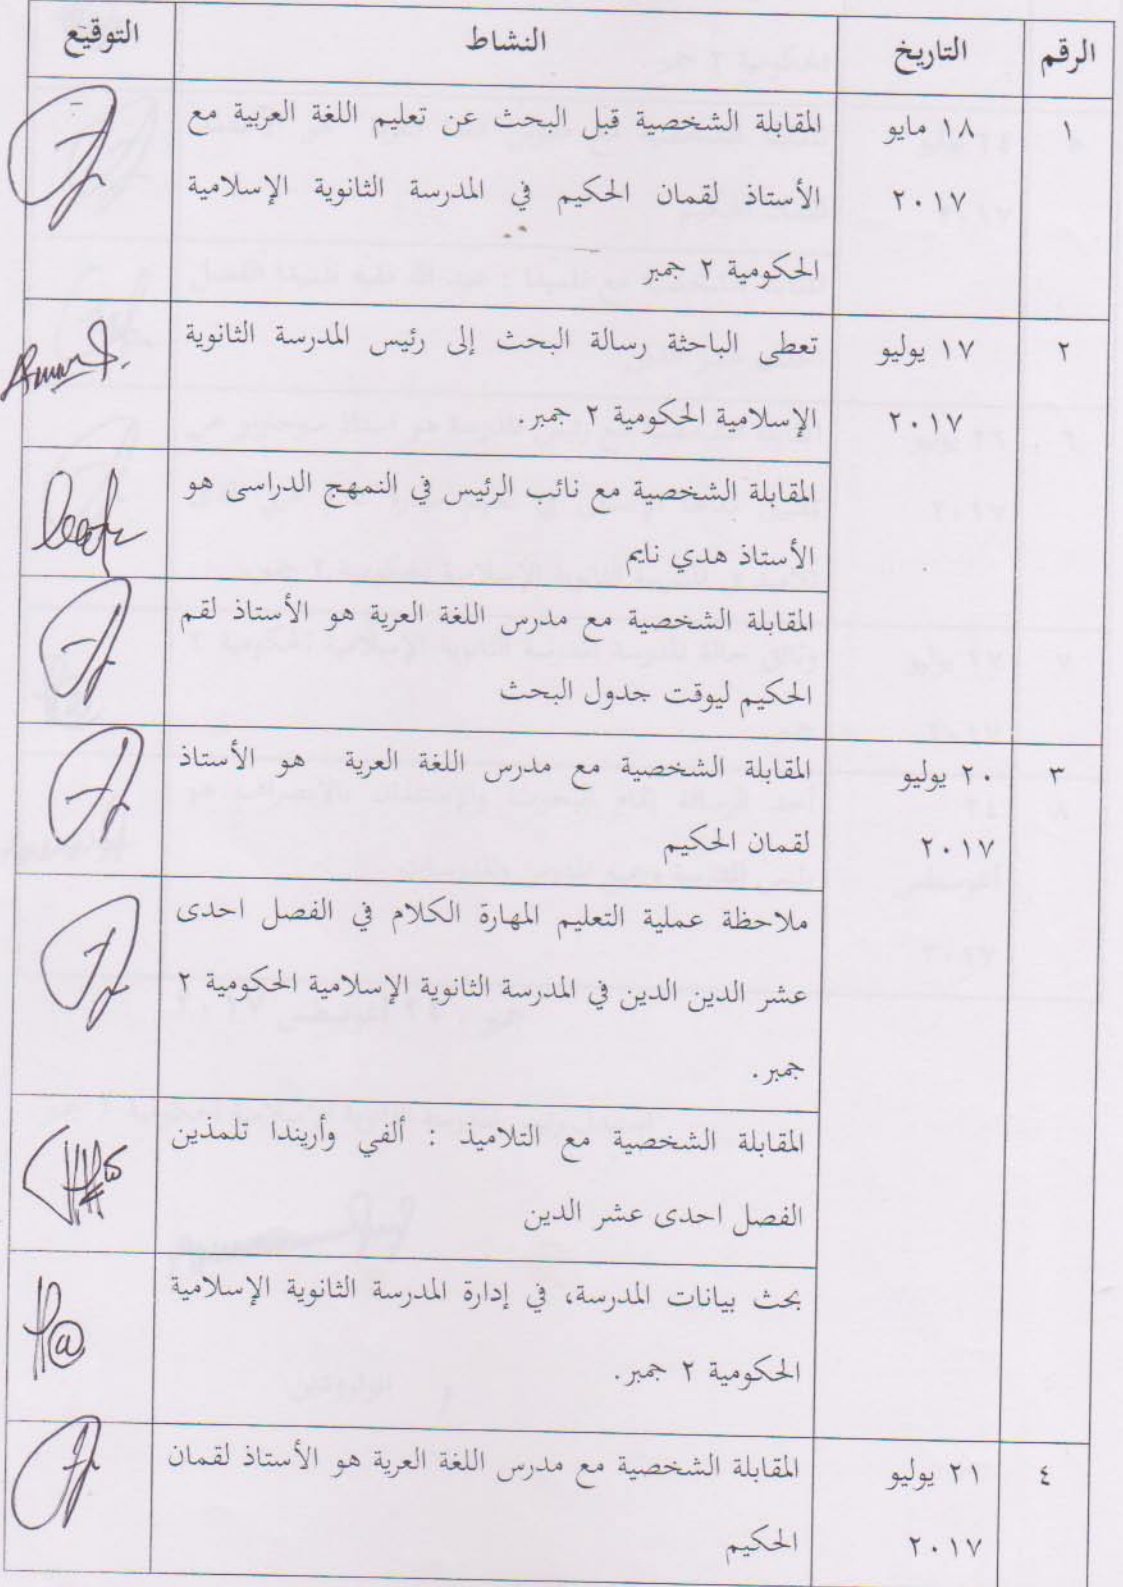 الرقم التاريخ النشاط التوقيع
١ ١٨ مايو المقابلة الشخصية قبل البحث عن تعليم اللغة العربية مع
٢٠١٧ الأستاذ لقمان الحكيم في المدرسة الثانوية الإسلامية
الحكومية ٢ جمبر
٢ ١٧ يوليو تعطى الباحثة رسالة البحث إلى رئيس المدرسة الثانوية
٢٠١٧ الإسلامية الحكومية ٢ جمبر.
المقابلة الشخصية مع نائب الرئيس في النمهج الدراسى هو
الأستاذ هدي نايم
المقابلة الشخصية مع مدرس اللغة العرية هو الأستاذ لقم
الحكيم ليوقت جدول البحث
٣ ٢٠ يوليو المقابلة الشخصية مع مدرس اللغة العرية هو الأستاذ
٢٠١٧ لقمان الحكيم
ملاحظة عملية التعليم المهارة الكلام في الفصل احدى
عشر الدين الدين في المدرسة الثانوية الإسلامية الحكومية ٢
جمبر.
المقابلة الشخصية مع التلاميذ : ألفي وأريندا تلمذين
الفصل احدى عشر الدين
بحث بيانات المدرسة، في إدارة المدرسة الثانوية الإسلامية
الحكومية ٢ جمبر.
٤ ٢١ يوليو المقابلة الشخصية مع مدرس اللغة العرية هو الأستاذ لقمان
٢٠١٧ الحكيم